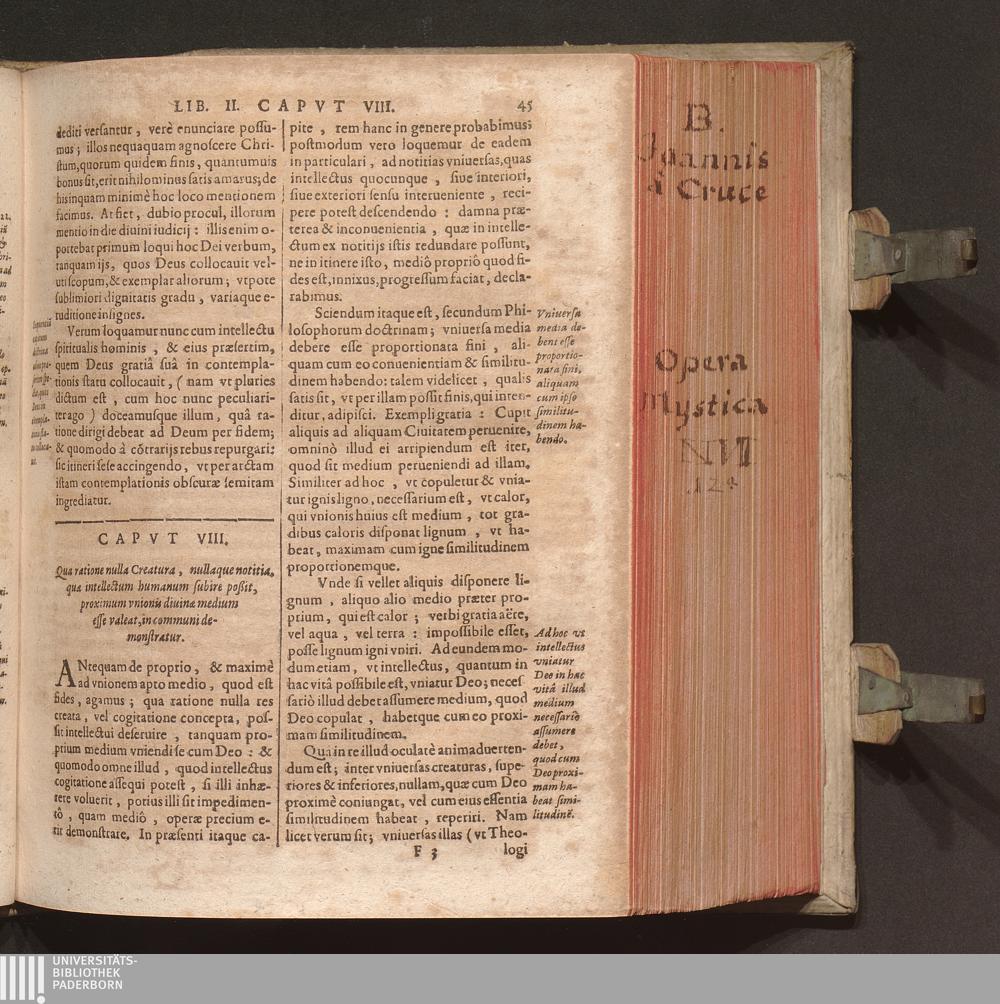 LIB. II. CAPVT VIII. 45
dediti versantur, verè enunciare possu-
mus; illos nequaquam agnoscere Chri-
stum, quorum quidem finis, quantumuis
bonus sit, erit nihilominus satis amarus; de
his inquam minimè hoc loco mentionem
facimus. At fiet, dubio procul, illorum
mentio in die diuini iudicij: illis enim o-
portebat primum loqui hoc Dei verbum,
tanquam ijs, quos Deus collocauit vel-
uti scopum, & exemplar aliorum; vtpote
sublimiori dignitatis gradu, variaque e-
ruditione insignes.
Verum loquamur nunc cum intellectu
spiritualis hominis, & eius præsertim,
quem Deus gratiâ suâ in contempla-
tionis statu collocauit, (nam vt pluries
dictum est, cum hoc nunc peculiari-
ter ago) doceamusque illum, quâ ra-
tione dirigi debeat ad Deum per fidem;
& quomodo à cõtrarijs rebus repurgari:
sic itineri sese accingendo, vt per arctam
istam contemplationis obscuræ semitam
ingrediatur.
CAPVT VIII.
Qua ratione nulla Creatura, nullaque notitia,
quæ intellectum humanum subire possit,
proximum vnionis diuinæ medium
esse valeat, in communi de-
monstratur.
ANtequam de proprio, & maximè
ad vnionem apto medio, quod est
fides, agamus; qua ratione nulla res
creata, vel cogitatione concepta, pos-
sit intellectui deseruire, tanquam pro-
prium medium vniendi se cum Deo: &
quomodo omne illud, quod intellectus
cogitatione assequi potest, si illi inhæ-
rere voluerit, potius illi sit impedimen-
tô, quam mediô, operæ precium e-
rit demonstrare. In præsenti itaque ca-
pite, rem hanc in genere probabimus;
postmodum vero loquemur de eadem
in particulari, ad notitias vniuersas, quas
intellectus quocunque, siue interiori,
siue exteriori sensu interueniente, reci-
pere potest descendendo: damna præ-
terea & inconuenientia, quæ in intelle-
ctum ex notitijs istis redundare possunt,
ne in itinere isto, mediô propriô quod fi-
des est, innixus, progressum faciat, decla-
rabimus.
Sciendum itaque est, secundum Phi-
losophorum doctrinam; vniuersa media
debere esse proportionata fini, ali-
quam cum eo conuenientiam & similitu-
dinem habendo: talem videlicet, qualis
satis sit, vt per illam possit finis, qui inten-
ditur, adipisci. Exempli gratia: Cupit
aliquis ad aliquam Ciuitatem peruenire,
omninò illud ei arripiendum est iter,
quod sit medium perueniendi ad illam.
Similiter ad hoc, vt copuletur & vnia-
tur ignis ligno, necessarium est, vt calor,
qui vnionis huius est medium, tot gra-
dibus caloris disponat lignum, vt ha-
beat, maximam cum igne similitudinem
proportionemque.
Vnde si vellet aliquis disponere li-
gnum, aliquo alio medio præter pro-
prium, qui est calor; verbi gratia aëre,
vel aqua, vel terra: impossibile esset,
posse lignum igni vniri. Ad eundem mo-
dum etiam, vt intellectus, quantum in
hac vitâ possibile est, vniatur Deo; neces
sariò illud debet assumere medium, quod
Deo copulat, habetque cum eo proxi-
mam similitudinem.
Quâ in re illud oculatè animaduerten-
dum est; inter vniuersas creaturas, supe-
riores & inferiores, nullam, quæ cum Deo
proximè coniungat, vel cum eius essentia
similitudinem habeat, reperiri. Nam
licet verum sit; vniuersas illas (vt Theo-
F 3 logi
Vniuersa
media de-
bent esse
proportio-
nata fini,
aliquam
cum ipso
similitu-
dinem ha-
bendo.
Ad hoc vt
intellectus
vniatur
Deo in hac
vitâ illud
medium
necessariò
assumere
debet,
quod cum
Deo proxi-
mam ha-
beat simi-
litudinẽ.
B.
Joannis
à Cruce
Opera
Mystica
124
UNIVERSITÄTS-
BIBLIOTHEK
PADERBORN